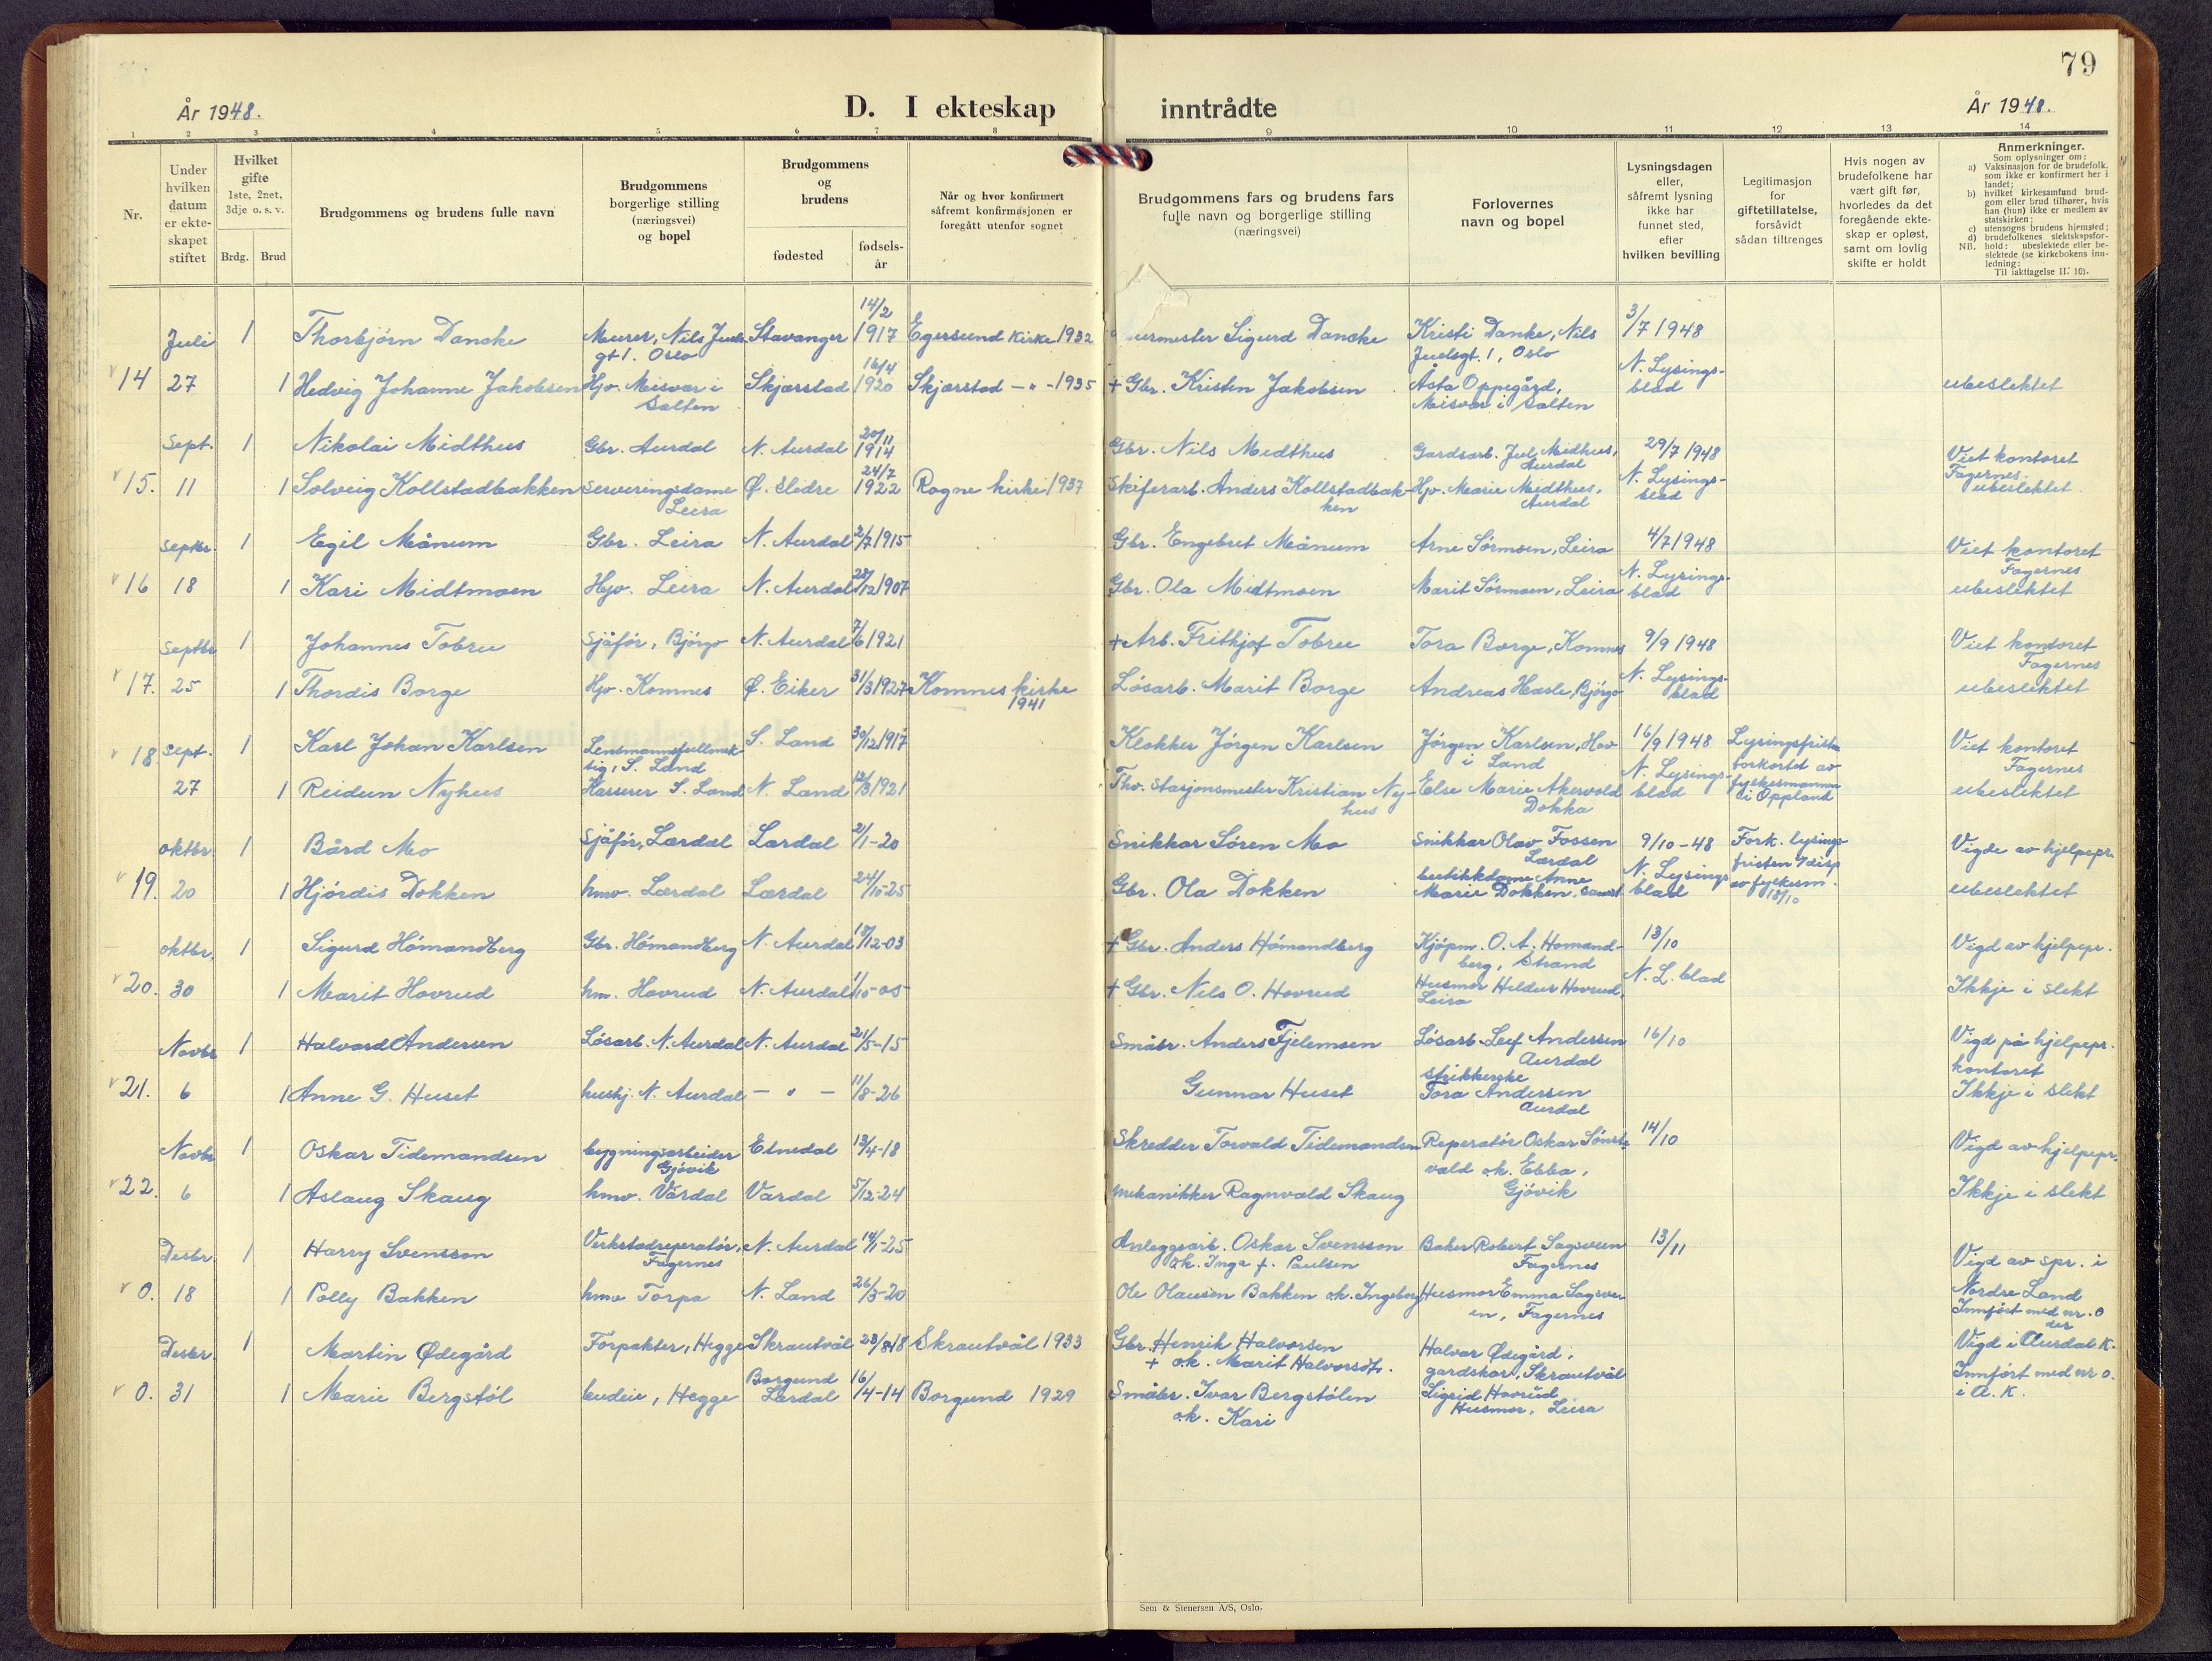 79
År 1948.
D. I ekteskap inntrådte
År 1948.
1 2 3 4 5 6 7 8 9 10 11 12 13 14
Nr.
Under
hvilken
datum
er ekte-
skapet
stiftet
Hvilket
gifte
1ste, 2net,
3dje o. s. v.
Brdg. Brud
Brudgommens og brudens fulle navn
Brudgommens
borgerlige stilling
(næringsvei)
og bopel
Brudgommens
og
brudens
fødested
fødsels-
år
Når og hvor konfirmert
såfremt konfirmasjonen er
foregått utenfor sognet
Brudgommens fars og brudens fars
fulle navn og borgerlige stilling
(næringsvei)
Forlovernes
navn og bopel
Lysningsdagen
eller,
såfremt lysning
ikke har
funnet sted,
efter
hvilken bevilling
Legitimasjon
for
giftetillatelse,
forsåvidt
sådan tiltrenges
Hvis nogen av
brudefolkene har
vært gift før,
hvorledes da det
foregående ekte-
skap er opløst,
samt om lovlig
skifte er holdt
Anmerkninger.
Som oplysninger om:
a) Vaksinasjon for de brudefolk.
som ikke er konfirmert her i
landet;
b) hvilket kirkesamfund brud-
gom eller brud tilhører, hvis
han (hun) ikke er medlem av
statskirken;
c) utensogns brudens hjemsted;
d) brudefolkenes slektskapsfor-
NB. hold: ubeslektede eller be-
slektede (se kirkebokens inn-
ledning;
Til iakttagelse II. 10).
Juli 1 Thorbjörn Dancke Murer, Nils Juels Stavanger 14/2 1917 Egersund Kirke 1932 urmester Sigurd Dancke Kristi Danke, Nils 3/7 1948
gt 1. Oslo Juelsgt. 1, Oslo
14 27 1 Hedvig Johanne Jakobsen Hjv. Misvær i Skjærstad 16/4 1920 Skjærstad - " - 1935 + Gbr. Kristen Jakobsen Åsta Oppegård, N. Lysings- ubeslektet
Salten Misvær i Salten blad
Sept. 1 Nikolai Midthus Gbr. Aurdal N. Aurdal 20/11 1914 Gbr. Nils Midthus Gardsarb. Jul. Midhus, 29/7 1948 Viet kontoret
Aurdal Fagernes
15. 11 1 Solveig Kollstadbakken Serveringsdame Ø. Slidre 24/7 1922 Rogne kirke 1937 Skiferarb. Anders Kollstadbak- Hjv. Marie Midthus, N. Lysings- ubeslektet
Leira ken Aurdal blad
Septbr. 1 Egil Månum Gbr. Leira N. Aurdal 2/7 1915 Gbr. Engebret Månum Arne Sörmoen, Leira 4/7 1948 Viet kontoret
Fagernes
16 18 1 Kari Midtmoen Hjv. Leira N. Aurdal 28/12 1907 Gbr. Ola Midtmoen Marit Sörmoen, Leira N. Lysings- ubeslektet
blad
Septbr 1 Johannes Tobru Sjåför, Björgo N. Aurdal 7/6 1921 + Arb. Frithjof Tobru Tora Borge, Komnes 9/9 1948 Viet kontoret
Fagernes
17. 25 1 Thordis Borge Hjv. Komnes Ø. Eiker 31/3 1927 Komnes kirke Lösarb. Marit Borge Andreas Hasle, Björgo N. Lysings- ubeslektet
1941 blad
18 Sept. 1 Karl Johan Karlsen Lensmannsfullmek- S. Land 30/12 1917 Klokker Jörgen Karlsen Jörgen Karlsen, Hov 16/9 1948 Lysingsfristen Viet kontoret
tig, S. Land i Land forkortet av Fagernes
27 1 Reidun Nyhus Kasserer S. Land N. Land 12/3 1921 Thv. Stasjonsmester Kristian Ny- Else Marie Akervold N. Lysings- fylkesmannen ubeslektet
hus Dokka blad i Oppland
oktbr 1 Bård Mo Sjåför, Lærdal Lærdal 2/1-20 Snikkar Sören Mo Snikkar Olav Fossen 9/10-48 Fork. lysings- Vigde av hjelpepr.
Lærdal fristen v/disp
19. 20 1 Hjördis Dokken hmv. Lærdal Lærdal 24/10-25 Gbr. Ola Dokken butikkdame Anne N. Lysings av fylkesm. ubeslektet
Marie Dokken. samst blad 18/10
oktbr. 1 Sigurd Hömandberg Gbr. Hömandberg N. Aurdal /12-03 + Gbr. Anders Hömandberg Kjöpm. O. A. Homand- 13/10 Vigd av hjelpepr.
berg, Strand
20. 30 1 Marit Hovrud hm. Hovrud N. Aurdal 1/10-05 + Gbr. Nils O. Hovrud Husmor Heldur Hovrud, N. L. blad Ikkje i slekt
Leira
Novbr 1 Halvard Andersen Lösarb. N. Aurdal N. Aurdal 21/5-15 Småbr. Anders Fjelemsen Lösarb. Leif Andersen 16/10 Vigd på hjelpepr.
Aurdal kontoret
21. 6 1 Anne G. Huset hushj. N. Aurdal - " - 11/8-26 Gunnar Huset Strikkerske Ikkje i slekt
Tora Andersen
Aurdal
Novbr 1 Oskar Tidemandsen bygningsarbeider Etnedal 13/4-18 Skredder Torvald Tidemandsen Reperatör Oskar Sönste- 14/10 Vigd av hjelpepr.
Gjövik vold ok. Ebba,
22. 6 1 Aslaug Skaug hmv. Vardal Vardal 5/12-24 mekanikker Ragnvald Skaug Gjövik Ikkje i slekt
Desbr. 1 Harry Svensson Verkstadreperatör, N. Aurdal 14/1-25 Anleggsarb. Oskar Svensson Baker Robert Sagsveen 13/11 Vigd av spr. i
Fagernes ok. Inga f. Paulsen Fagernes Nordre Land
0. 18 1 Polly Bakken hmv Torpa N. Land 26/3-20 Ole Olausen Bakken ok. Ingeborg Husmor Emma Sagsve- Innfört med nr. 0
en, Fagernes der
Desbr. 1 Martin Ødegård Forpakter, Hegge Skrautvål 23/8 18 Skrautvål 1933 Gbr. Henrik Halvorsen Halvor Ødegård, Vigd i Aurdal K.
+ ok. Marit Halvorsdt. gardskar, Skrautvål Innfört med nr 0.
0. 31 1 Marie Bergstöl budeie, Hegge Borgund Lærdal 16/4-14 Borgund 1929 Småbr. Ivar Bergstölen Sigrid Hovrud i A. K.
ok. Kari Husmor, Leira
Sem & Stenersen A/S, Oslo.